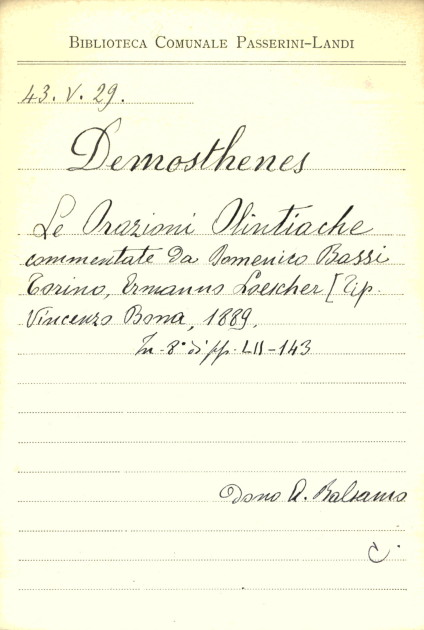 BIBLIOTECA COMUNALE PASSERINI-LANDI
43. V. 29.
Demosthenes
Le Orazioni Olintiache
commentate da Domenico Bassi
Torino, Ermanno Loescher [Tip.
Vincenzo Bona, 1889.
In-8° di pp. LII-143
Dono A. Balsamo
C.